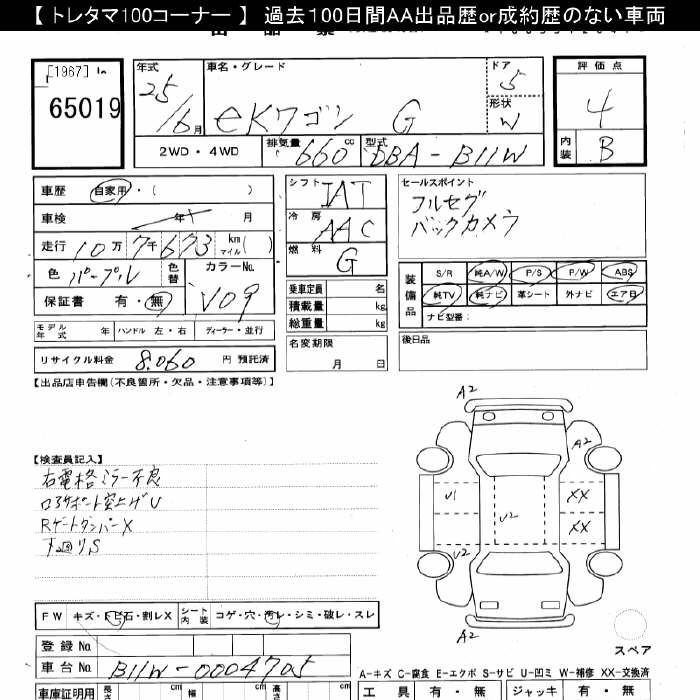 【 トレタマ100コーナー 】 過去100日間AA出品歴or成約歴のない車両
[1967] 1n
65019
年式
25
/6月
車名・グレード
eKワゴン G
ドア
5
形状
W
評価点
4
内装
B
2WD・4WD
排気量
660cc
型式
DBA-B11W
車歴 自家用・( )
車検 年 月
走行 10万7千673 km マイル( )
色 パープル
色替
カラーNo.
V09
保証書 有・無
モデル年式 年 ハンドル 左・右 ディーラー・並行
リサイクル料金 8.060 円 預託済
シフト
IAT
冷房
AAC
燃料
G
乗車定員 名
積載量 kg
総重量 kg
名変期限
月 日
セールスポイント
フルセグ
バックカメラ
装備品
S/R 純A/W P/S P/W ABS
純TV 純ナビ 革シート 外ナビ エア日
ナビ型番:
後日品
【出品店申告欄(不良箇所・欠品・注意事項等)】
【検査員記入】
右電格ミラー不良
ロアサポート突上げU
RゲートダンパーX
下回り,S
A2
A2
U1
XX
XX
U2
U2
A2
スペア
FW キズ・トビ石・割レX
シート内装 コゲ・穴・汚レ・シミ・破レ・スレ
登録No.
車台No. B11W-0004705
A-キズ C-腐食 E-エクボ S-サビ U-凹ミ W-補修 XX-交換済
車庫証明用 長さ cm 幅 cm 高さ cm
工具 有・無 ジャッキ 有・無